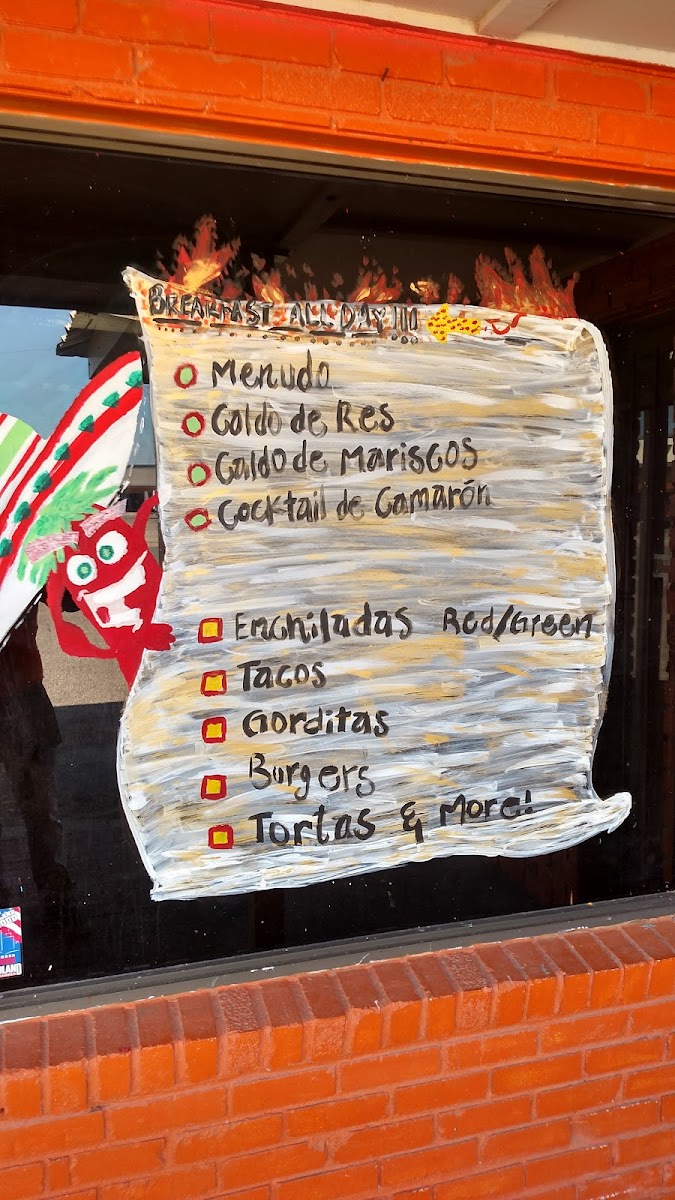 BREAKFAST ALL DAY!!!
Menudo
Caldo de Res
Caldo de Mariscos
Cocktail de Camarón
Enchiladas Red/Green
Tacos
Gorditas
Burgers
Tortas & More!